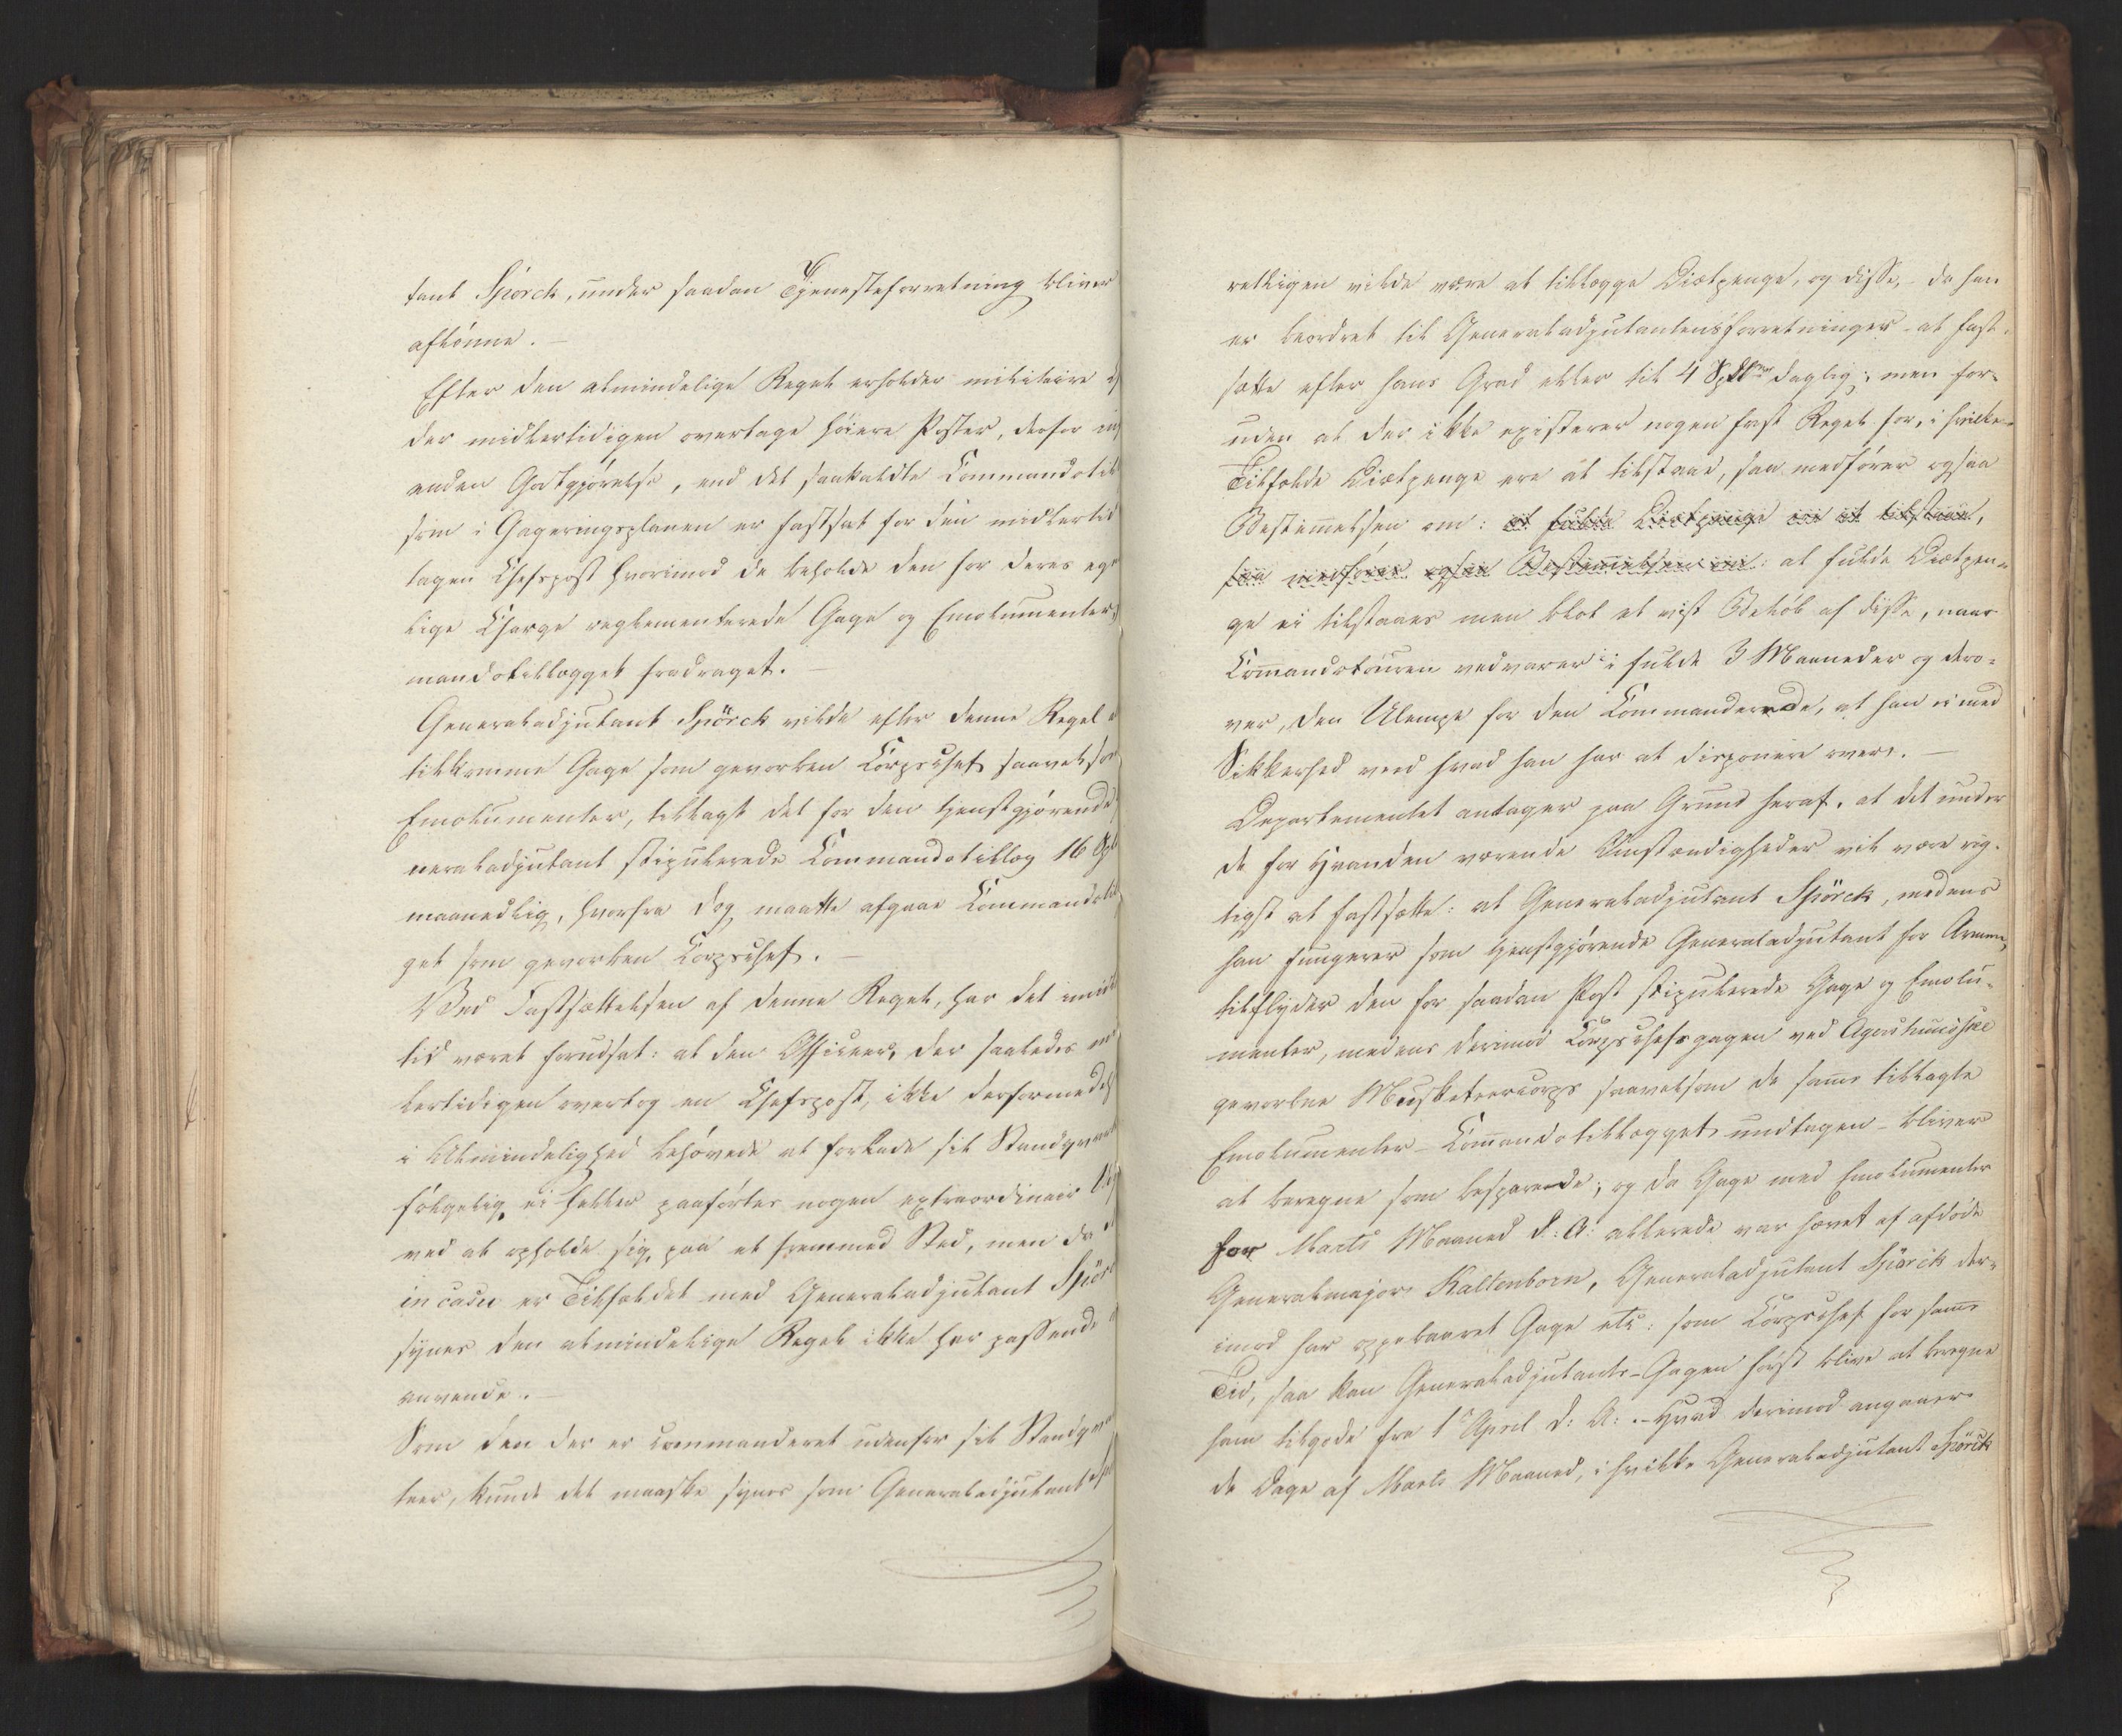 tant Spörck, under saadan Tjenesteforretning bliver
aflönne. —
Efter den almindelige Regel erholder militaire
der midlertidigen overtage höiere Poster, derfor
anden Godtgjörelse, end det saakaldte Commandotil
som i Gageringsplanen er fastsat for den midlertid
tagen Chefspost hvorimod de beholde den for deres eg
lige Charge reglementerede Gage og Emolumenter,
mandotillægget fradraget. —
Generaladjutant Spörck vilde efter denne Regel
tilkomme Gage som gevorben Corpschef saavelsom
Emolumenter, tillagt det for den tjenstgjörende
neraladjutant stipulerede Commandotillæg 16 Sp
maanedlig, hvorfra dog maatte afgaae Commandotil
get som gevorben Corpschef. —
Ved Fastsættelsen af denne Regel, har det imid
tid været forudsat: at den Officeer, der saaledes mid
lertidigen overtog en Chefspost, ikke derformedelst
i Almindelighed behövede at forlade sit Standqvart
fölgelig ei heller paaförtes nogen extraordinair
ved at opholde sig paa et fremmed Sted, men da
in casu er Tilfældet med Generaladjutant Spörck
synes den almindelige Regel ikke her passende
anvende. —
Som den der er commanderet udenfor sit Standqvar
teer, kunde det maaske synes som Generaladjutant Sp
retligen vilde være at tillægge Diætpenge, og disse, – da han
er beordret til Generaladjutantensforretninger – at fast-
sætte efter hans Grad eller til 4 Spdlr daglig; men for-
uden at der ikke existerer nogen fast Regel for, i hvilke
Tilfælde Diætpenge ere at tilstaae, saa medförer ogsaa
Bestemelsen om: at fulde Diætpenge ei at tilstaae,
saa medförer ogsaa Bestemmelsen om: at fulde Diætpen-
ge ei tilstaaes men blot et vist Belöb af disse, naar
Commandotouren vedvarer i fulde 3 Maaneder og dero-
ver, den Ulempe for den Commanderede, at han ei med
Sikkerhed veed hvad han har at disponere over. —
Departementet antager paa Grund heraf, at det under
de for Haanden værende Omstændigheder vil være rig-
tigst at fastsætte: at Generaladjutant Spörck, medens
han fungerer som tjenstgjörende Generaladjutant for Armeen,
tilflyder den for saadan Post stipulerede Gage og Emolu-
menter, medens derimod Corpschefsgagen ved Agershuusiske
gevorbne Musketeercorps saavelsom de samme tillagte
Emolumenter – Commandotillægget undtagen – bliver
at beregne som besparende; og da Gage med Emolumenter
for Marts Maaned d: A: allerede var hævet af afdöde
Generalmajor Kaltenborn, Generaladjutant Spörck der-
imod har oppebaaret Gage etc: som Corpschef for samme
Tid, saa kan Generaladjutants-Gagen först blive at beregne
ham tilgode fra 1 April d: A: . – Hvad derimod angaaer
de Dage af Marts Maaned, i hvilke Generaladjutant Spörck